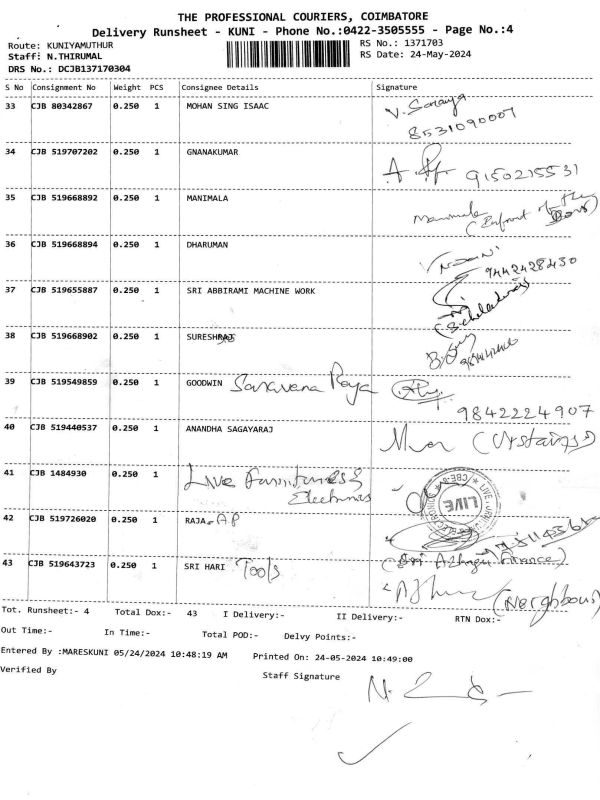 THE PROFESSIONAL COURIERS, COIMBATORE
Delivery Runsheet - KUNI - Phone No.:0422-3505555 - Page No.:4
Route: KUNIYAMUTHUR RS No.: 1371703
Staff: N.THIRUMAL RS Date: 24-May-2024
DRS No.: DCJB137170304
S No Consignment No Weight PCS Consignee Details Signature
33 CJB 80342867 0.250 1 MOHAN SING ISAAC V. Saranya
8531090007
34 CJB 519707202 0.250 1 GNANAKUMAR 9150215531
35 CJB 519668892 0.250 1 MANIMALA Manimala
(Infront of the Door)
36 CJB 519668894 0.250 1 DHARUMAN
9442428430
37 CJB 519655887 0.250 1 SRI ABBIRAMI MACHINE WORK
38 CJB 519668902 0.250 1 SURESHRAJ
39 CJB 519549859 0.250 1 GOODWIN Saravana Raja
9842224907
40 CJB 519440537 0.250 1 ANANDHA SAGAYARAJ (Upstairs)
41 CJB 1484930 0.250 1 Live Furnitures &
Electronics
LIVE
42 CJB 519726020 0.250 1 RAJA - AP
(Sri Azhagu Finance)
43 CJB 519643723 0.250 1 SRI HARI Tools
(Neighbour)
Tot. Runsheet:- 4 Total Dox:- 43 I Delivery:- II Delivery:- RTN Dox:-
Out Time:- In Time:- Total POD:- Delvy Points:-
Entered By :MARESKUNI 05/24/2024 10:48:19 AM Printed On: 24-05-2024 10:49:00
Verified By Staff Signature